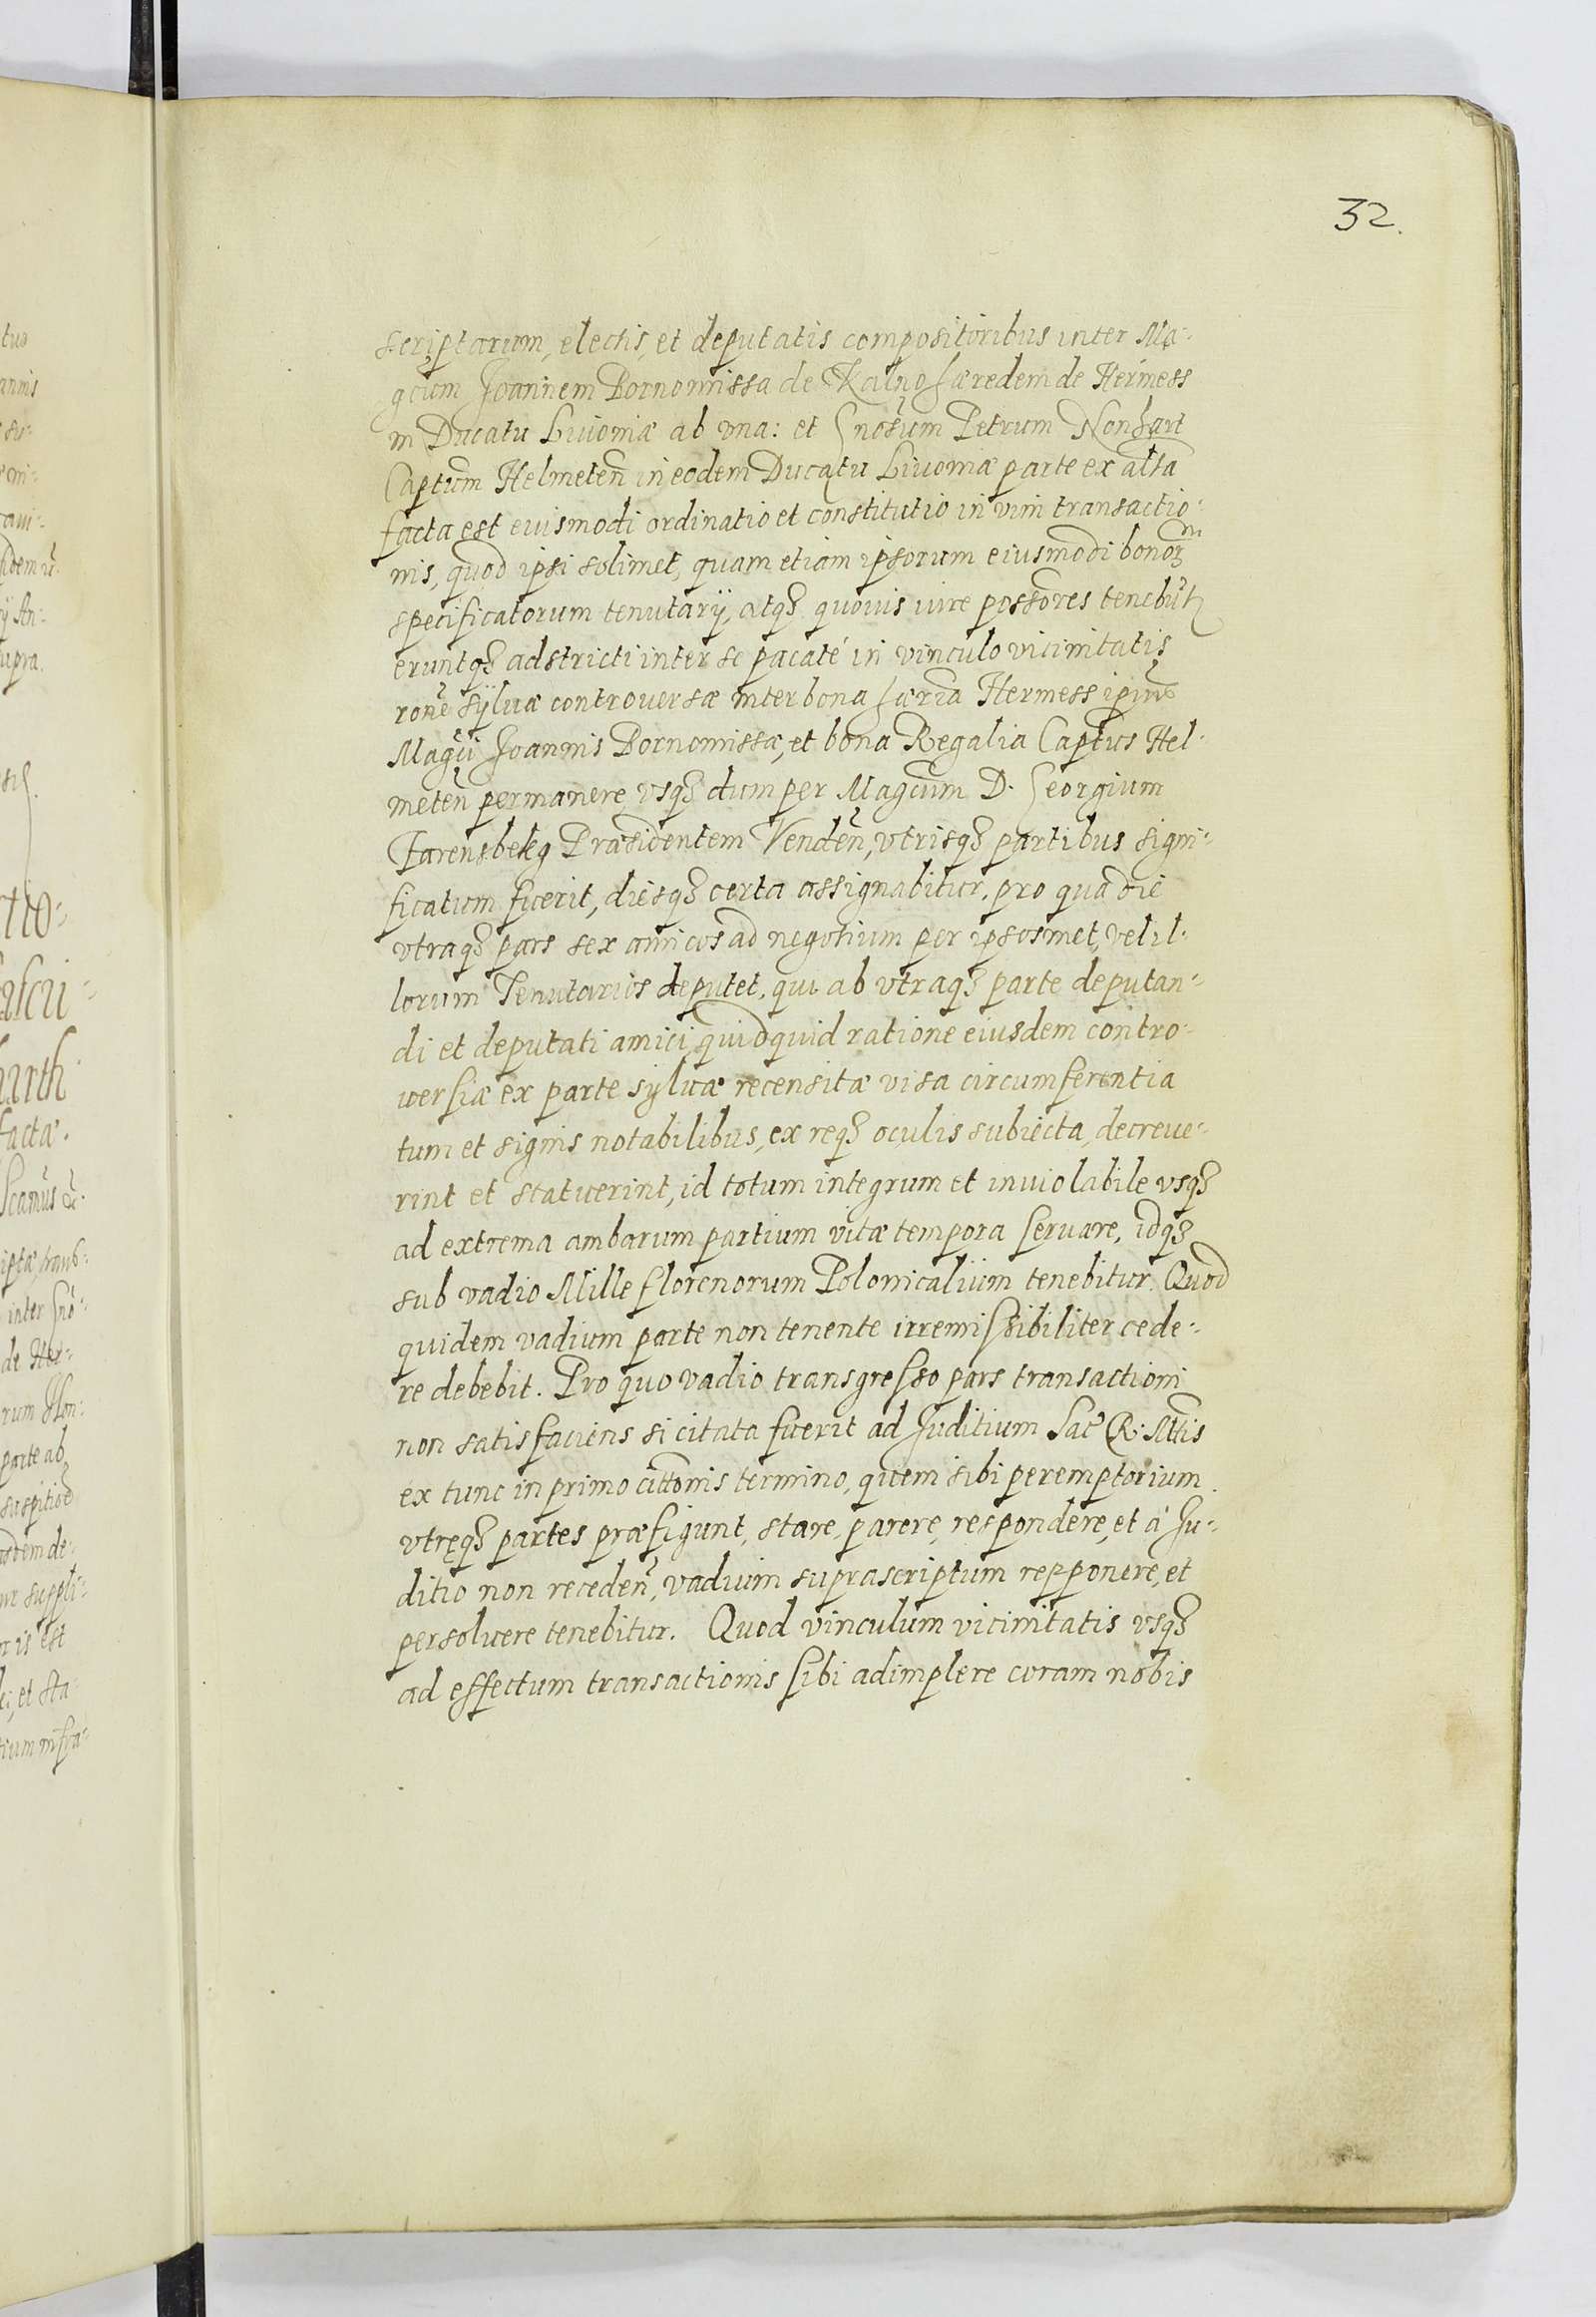 32.
scriptarum, electis, et deputatis compositoribus inter Ma-
gcum Joannem Bornomissa de Kalno hæredem de Hermess
in Ducatu Livoniæ ab vna: et Gnosum Petrum Nonhart
Captum Helmeten in eodem Ducatu Livoniæ parte ex alta
facta est eiusmodi ordinatio et constitutio in vim transactio-
nis, quod ipsi solimet, quam etiam ipsorum eiusmodi bonor
specificatorum tenutarÿ, atqȝ quouis iure possores tenebūt
eruntqȝ adstricti inter se pacaté in vinculo vicinitatis
rone sÿluæ controuersæ inter bona hæria Hermess ipius
Magci Joannis Bornomissæ, et bona Regalia Captus Hel-
meten permanere, vsqȝ dum per Magcum D. Georgium
Farensbekg Præsidentem Venden, vtrisqȝ partibus signi-
ficatum fuerit, diesqȝ certa assignabitur, pro qua die
vtraqȝ pars sex amicos ad negotium per ipsosmet, vel il-
lorum Tenutarios deputet, qui ab vtraqȝ parte deputan-
di et deputati amici quidquid ratione eiusdem contro-
uersiæ ex parte sÿluæ recensitæ visa circumferentia
tum et signis notabilibus, ex reqȝ oculis subiecta, decreue-
rint et statuerint, id totum integrum et inuiolabile vsqȝ
ad extrema ambarum partium vitæ tempora seruare, idqȝ
sub vadio Mille florenorum Polonicalium tenebitur. Quod
quidem vadium parte non tenente irremissibiliter cede-
re debebit. Pro quo vadio transgresso pars transactioni
non satisfaciens si citata fuerit ad Juditium Sac R: Mttis
ex tunc in primo cittonis termino, quem sibi peremptorium
vtręqȝ partes præfigunt, stare, parere, respondere, et á Ju-
ditio non receden, vadium suprascriptum repponere, et
persoluere tenebitur. Quod vinculum vicinitatis vsqȝ
ad effectum transactionis sibi adimplere coram nobis